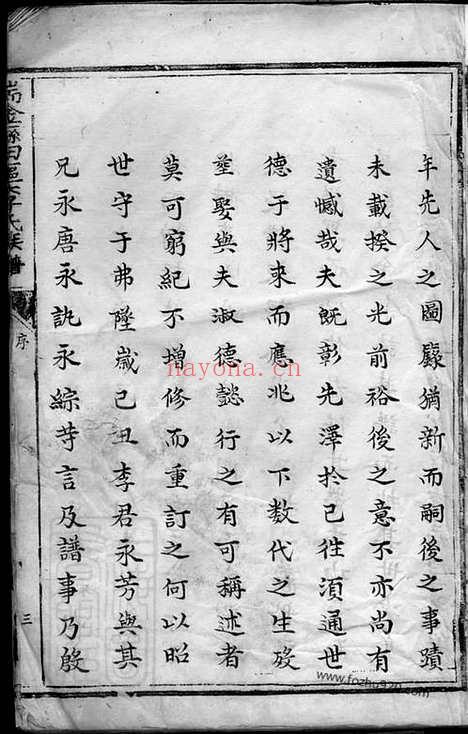 年先人之圖驟猶新而嗣後之事蹟
未載揆之光前裕後之意不亦尚有
遺憾哉夫既彰先澤於已往須通世
德于將來而應兆以下數代之生歿
塟娶與夫淑德懿行之有可稱述者
莫可窮紀不增修而重訂之何以昭
世守于弗墜歲己丑李君永芳與其
兄永唐永訛永綜等言及譜事乃殷
瑞金縣田塢李氏族譜
序
三
nayona.cn
www.fozhu920.com